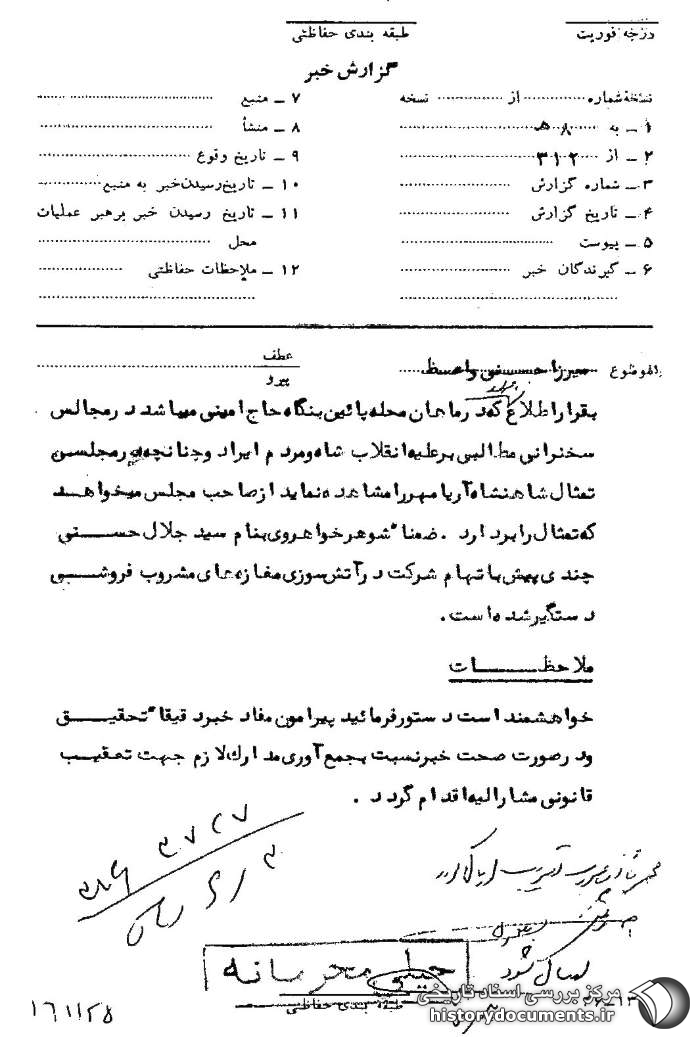 درجه فوریت
طبقه بندی حفاظتی
گزارش خبر
نسخه شماره .......... از .......... نسخه
۱ ـ به ۵۸ ه
۲ ـ از ۳۱۲
۳ ـ شماره گزارش
۴ ـ تاریخ گزارش
۵ ـ پیوست
۶ ـ گیرندگان خبر
۷ ـ منبع
۸ ـ منشأ
۹ ـ تاریخ وقوع
۱۰ ـ تاریخ رسیدن خبر به منبع
۱۱ ـ تاریخ رسیدن خبر برهبر عملیات
محل
۱۲ ـ ملاحظات حفاظتی
موضوع میرزا حسنی واعظ
عطف
پیرو
بقرار اطلاع که در ماهان محله پائین بنگاه حاج امینی میباشد در مجالس
سخنرانی مطالبی بر علیه انقلاب شاه و مردم ایراد و چنانچه در مجلسی
تمثال شاهنشاه آریامهر را مشاهده نماید از صاحب مجلس میخواهد
که تمثال را بردارد . ضمنا" شوهر خواهر وی بنام سید جلال حسنی
چندی پیش باتهام شرکت در آتش سوزی مغازه های مشروب فروشی
دستگیر شده است .
ملاحظات
خواهشمند است دستور فرمائید پیرامون مفاد خبر دقیقا" تحقیق
و در صورت صحت خبر نسبت بجمع آوری مدارك لازم جهت تعقیب
قانونی مشارالیه اقدام گردد .
ارسال شود
خیلی محرمانه
طبقه بندی حفاظتی
۱۶۱۱۲۵
مرکز بررسی اسناد تاریخی
historydocuments.ir